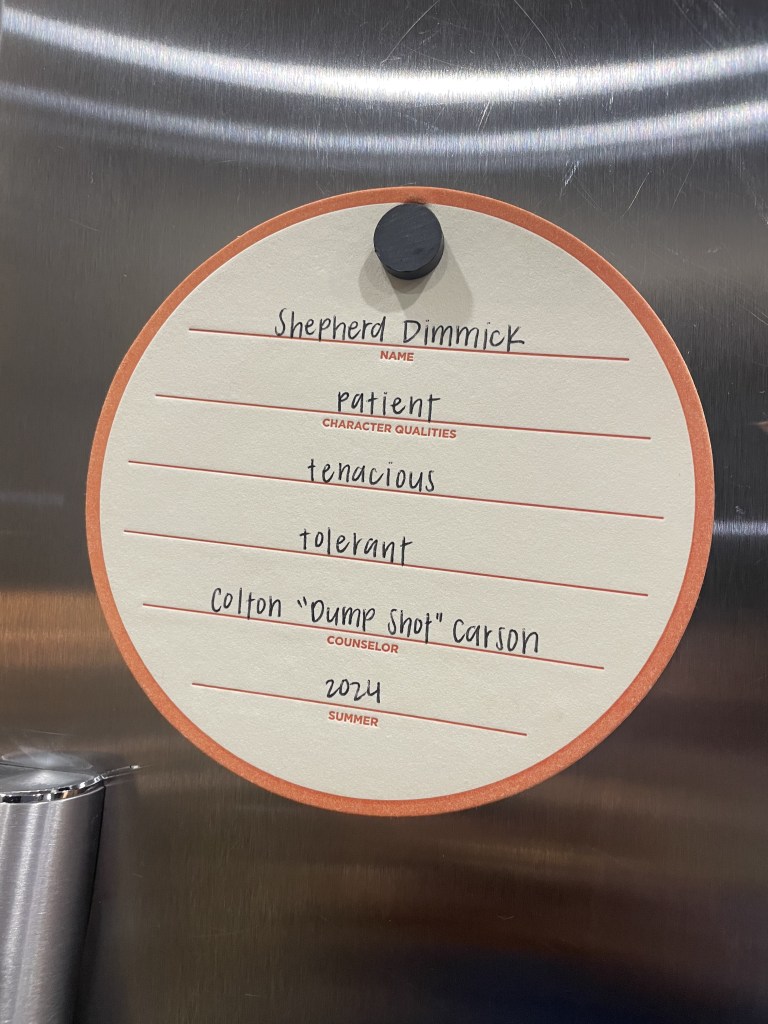 Shepherd Dimmick
NAME
patient
CHARACTER QUALITIES
tenacious
tolerant
Colton "Dump Shot" Carson
COUNSELOR
2024
SUMMER